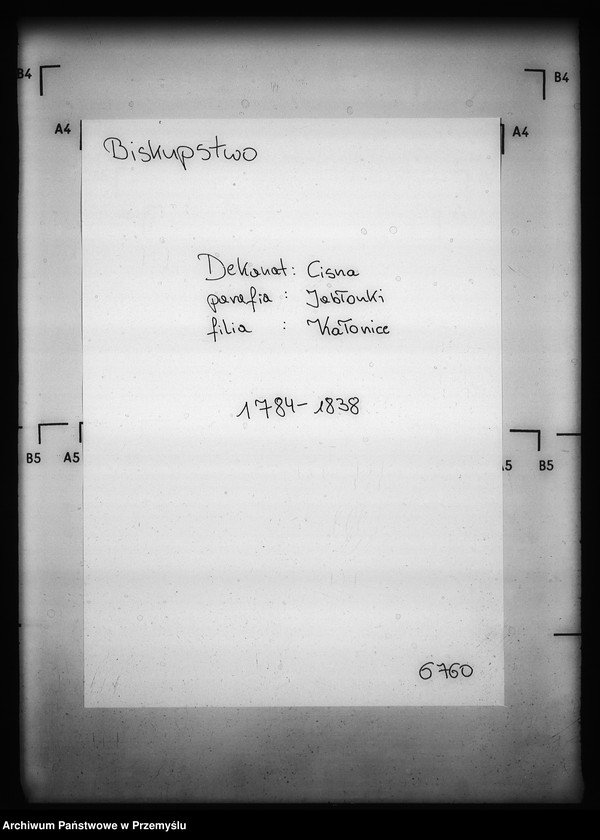 B4
B4
A4
A4
Biskupstwo
Dekanat: Cisna
parafia : Jabłonki
filia : Kałonice
1784-1838
B5
A5
A5
B5
6760
Archiwum Państwowe w Przemyślu